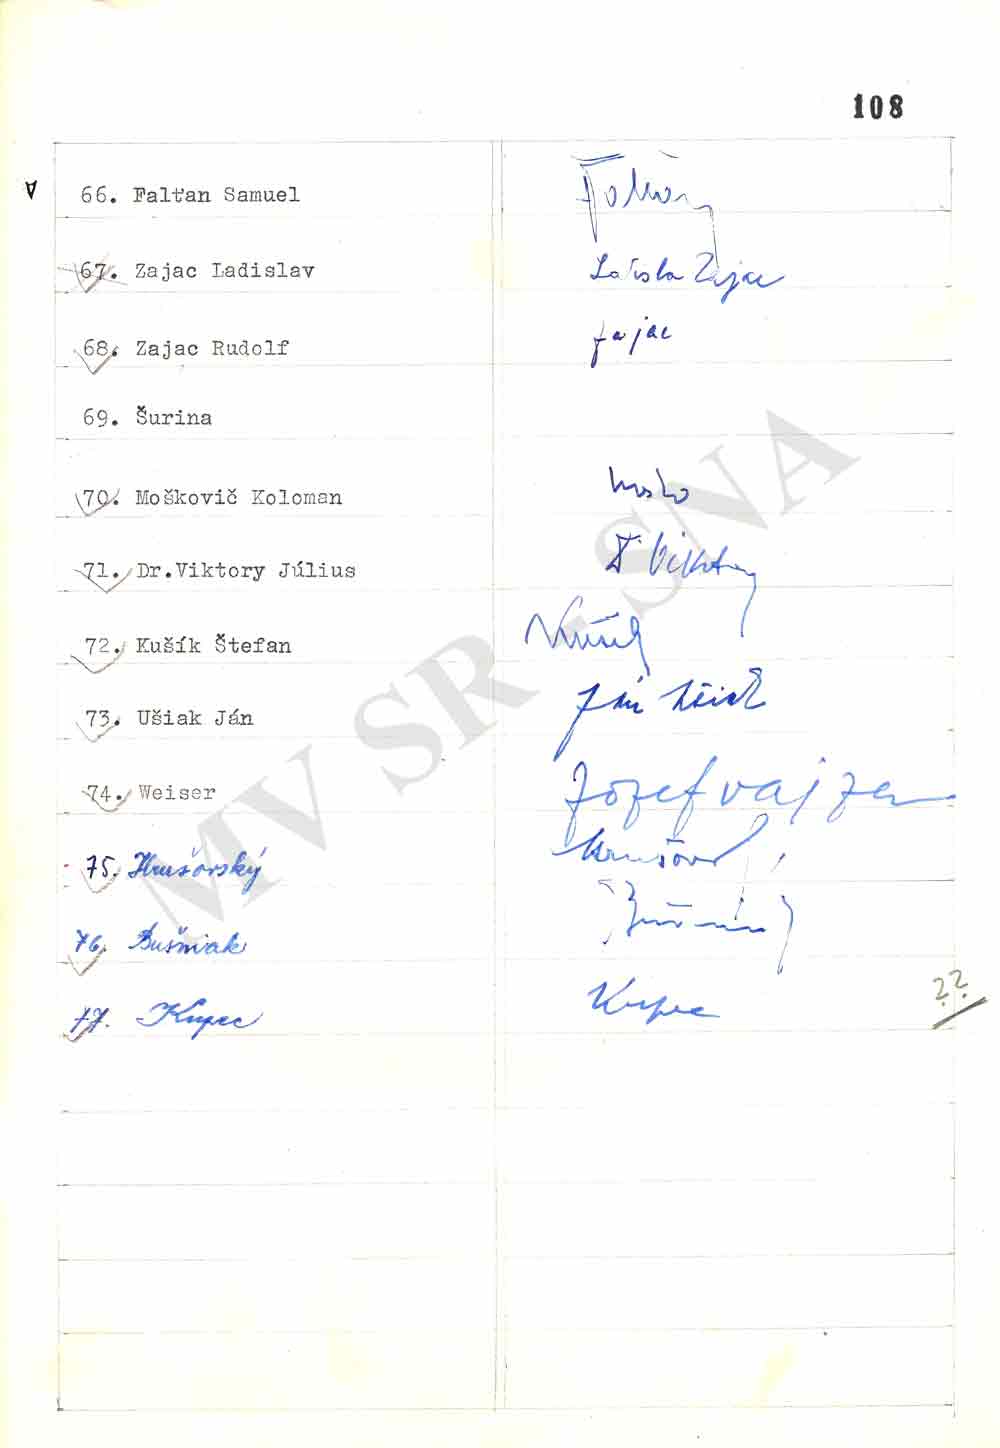 108
∀ 66. Falťan Samuel
67. Zajac Ladislav Ladisla Zajac
68. Zajac Rudolf Zajac
69. Šurina
70. Moškovič Koloman Mosko
71. Dr.Viktory Július Dr Viktory
72. Kušík Štefan Kušík
73. Ušiak Ján Ján Ušiak
74. Weiser Józef vajzer
75. Hrušovský
76. Bušniak
77. Kupec Kupec ??
MV SR - SNA